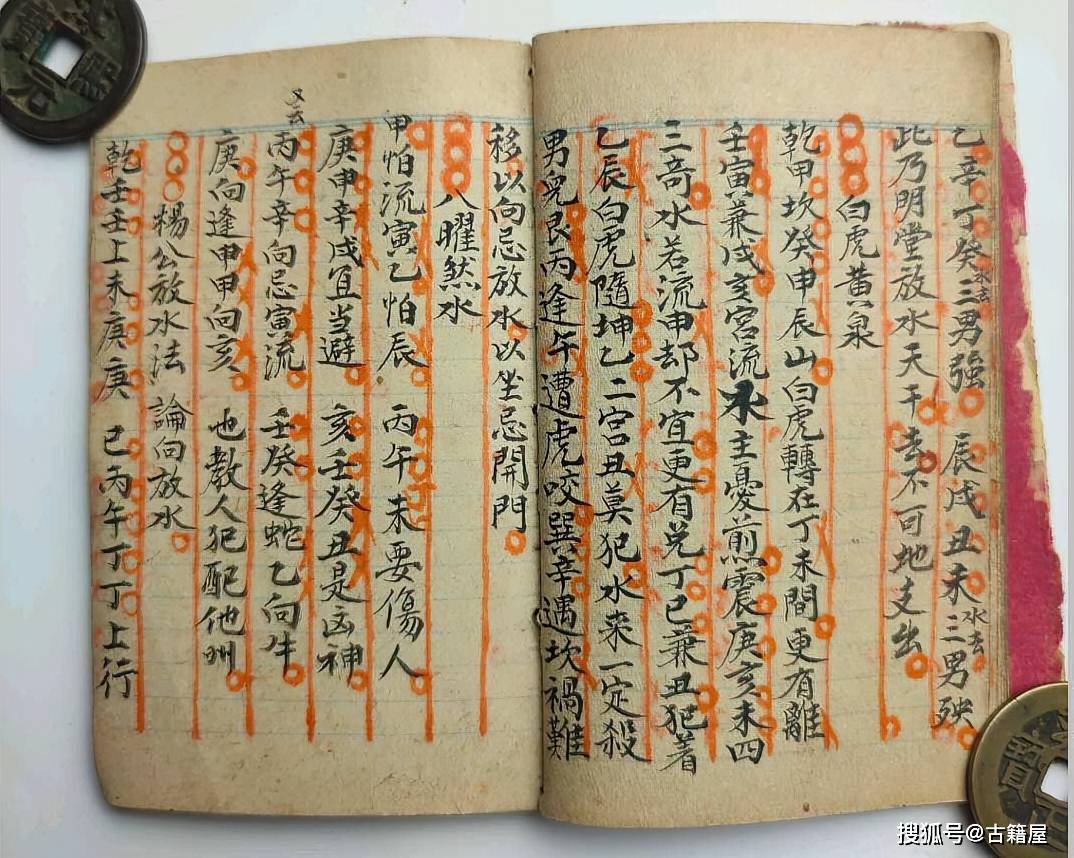 乙辛丁癸水去三男強　辰戌丑未水去三男殃
此乃明堂放水天干去不可地支出
白虎黃泉
乾甲坎癸申辰山白虎轉在丁未間更有離
壬寅兼戌亥宮流水主憂煎震庚亥未四
三奇水若流申却不宜更有兌丁巳兼丑犯着
乙辰白虎隨坤乙二宮丑莫犯水来一定殺
男兒艮丙逢午遭虎咬巽辛遇坎禍難
移以向忌放水以坐忌開門
八曜然水
甲怕流寅乙怕辰　丙午未要傷人
庚申辛戌宜当避　亥壬癸丑是凶神
又云
丙午辛向忌寅流　壬癸逢蛇乙向牛
庚向逢申甲向亥　也教人犯配他州
楊公放水法　論向放水
乾壬壬上未庚庚　巳丙午丁丁上行
搜狐号@古籍屋